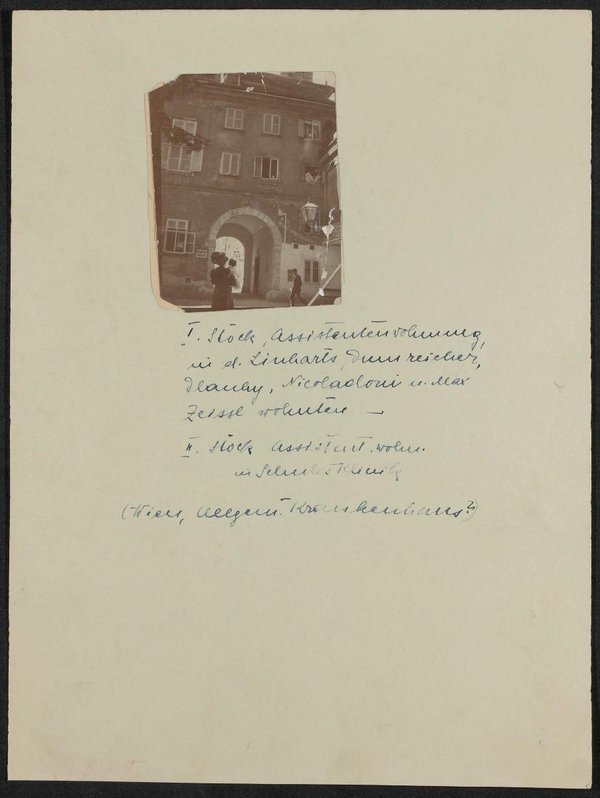 I. Stock, Assistentenwohnung,
in d. Linharts, Dumreicher,
Dlauhy, Nicoladoni u. Max
Zeissl wohnten —
II. Stock Assistent. wohn.
in Klinik
(Wien, Allgem. Krankenhaus?)